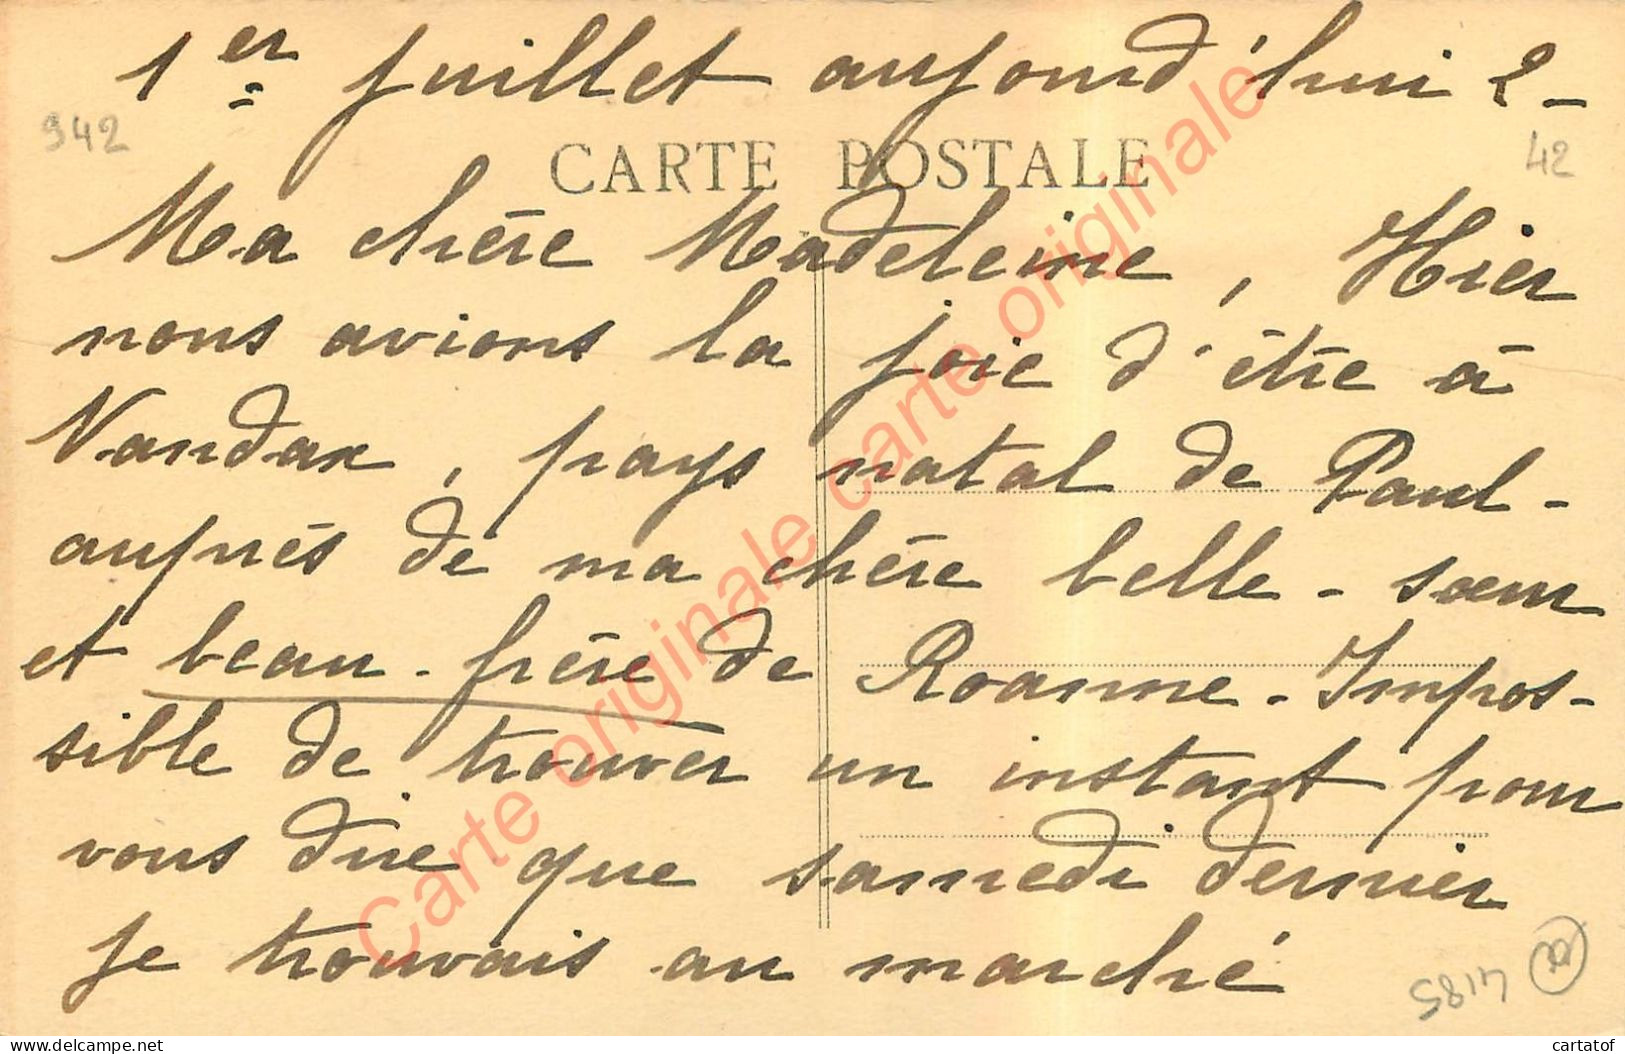 1er juillet aujourd'hui 2-
942
CARTE POSTALE
42
Ma chère Madeleine, Hier
nous avions la joie d'être à
Nandax, pays natal de Paul-
auprès de ma chère belle-sœur
et beau-frère de Roanne-Impos-
sible de trouver un instant pour
vous dire que samedi dernier
je trouvais au marché
Carte originale carte originale carte originale
www.delcampe.net
cartatof